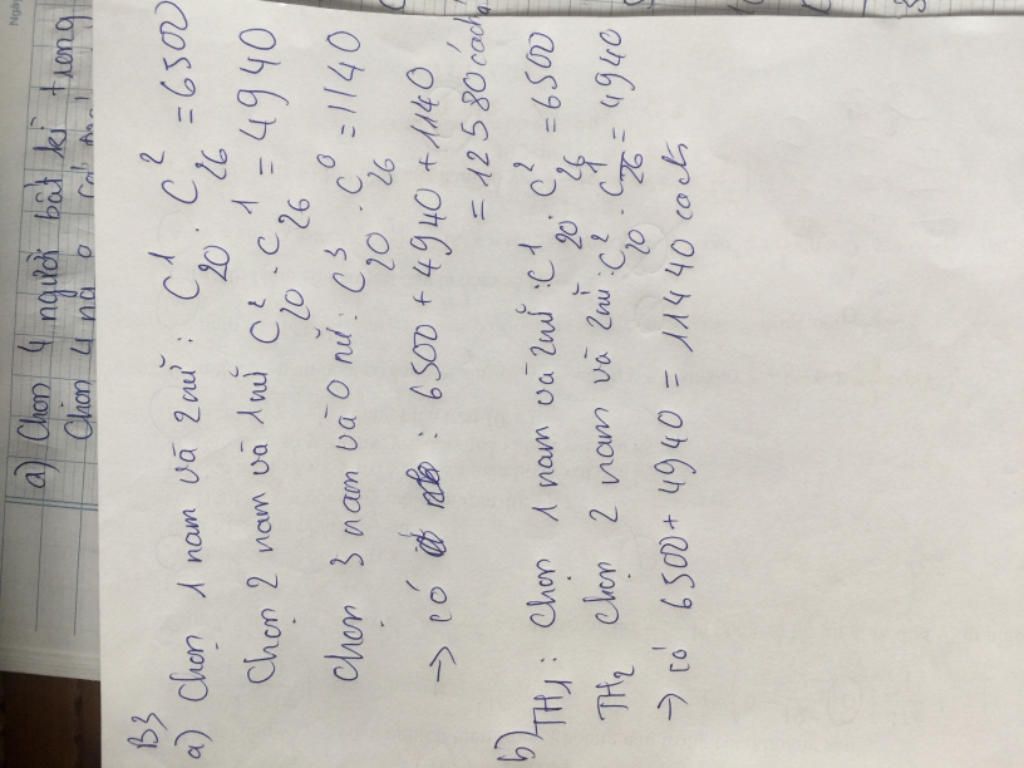 a) Chọn 4 người bất kì trong
Chọn 4 nữ
B3
a) Chọn 1 nam và 2nữ : C¹₂₀ . C²₂₆ = 6500
Chọn 2 nam và 1nữ C²₂₀ . C¹₂₆ = 4940
Chọn 3 nam và 0 nữ : C³₂₀ . C⁰₂₆ = 1140
→ có : 6500 + 4940 + 1140
= 12580 cách
b) TH₁ : Chọn 1 nam và 2nữ : C¹₂₀ . C²₂₆ = 6500
TH₂ Chọn 2 nam và 2nữ : C²₂₀ . C¹₂₆ = 4940
→ có 6500 + 4940 = 11440 cách